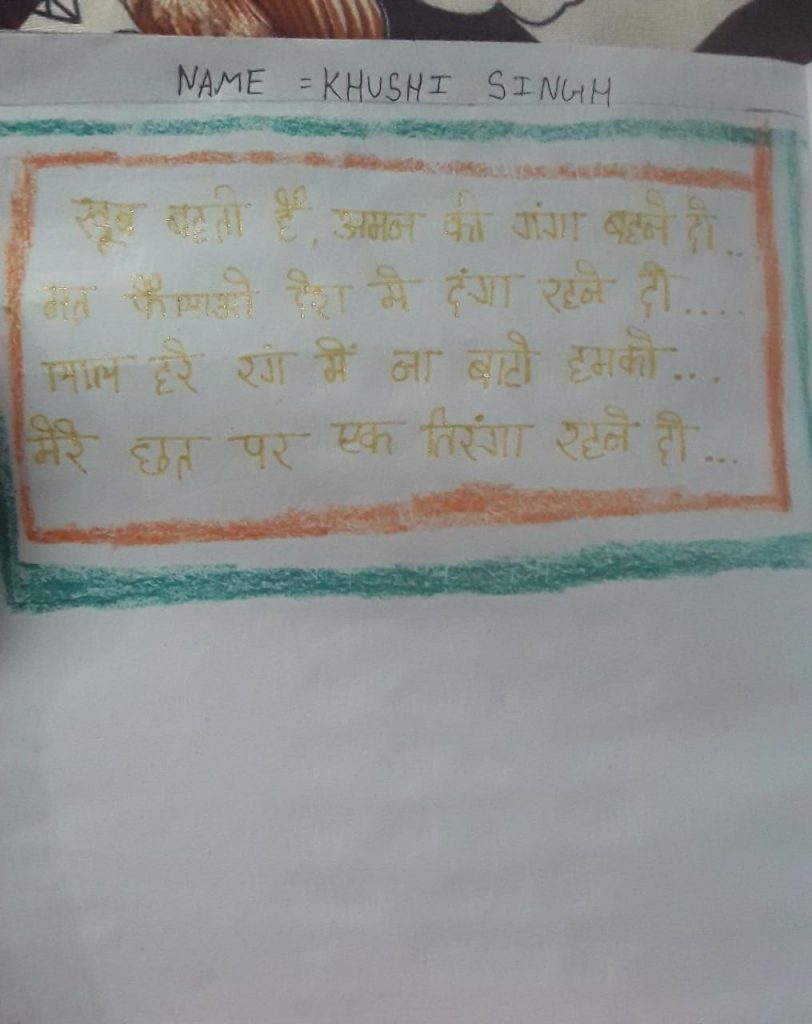 NAME = KHUSHI SINGH
खूब बहती है, अमन की गंगा बहने दो..
मत फैलाओ देश मे दंगा रहने दो....
लाल हरे रंग में ना बाटो हमको...
मेरे छत पर एक तिरंगा रहने दो...